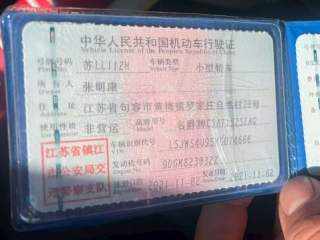 中华人民共和国机动车行驶证
Vehicle License of the People's Republic of China
号牌号码 苏LL112H 车辆类型 小型轿车
Plate No. Vehicle Type
所有人 张明康
Owner
住址 江苏省句容市黄梅镇罗家庄自然村28号
Address
使用性质 非营运 品牌型号 名爵牌CSA7152EEAQ
江苏省镇江 车辆识别代号
VIN
市公安局交 发动机号码
Engine No.
通警察支队 注册日期 2021-11-02 发证日期 2021-11-02